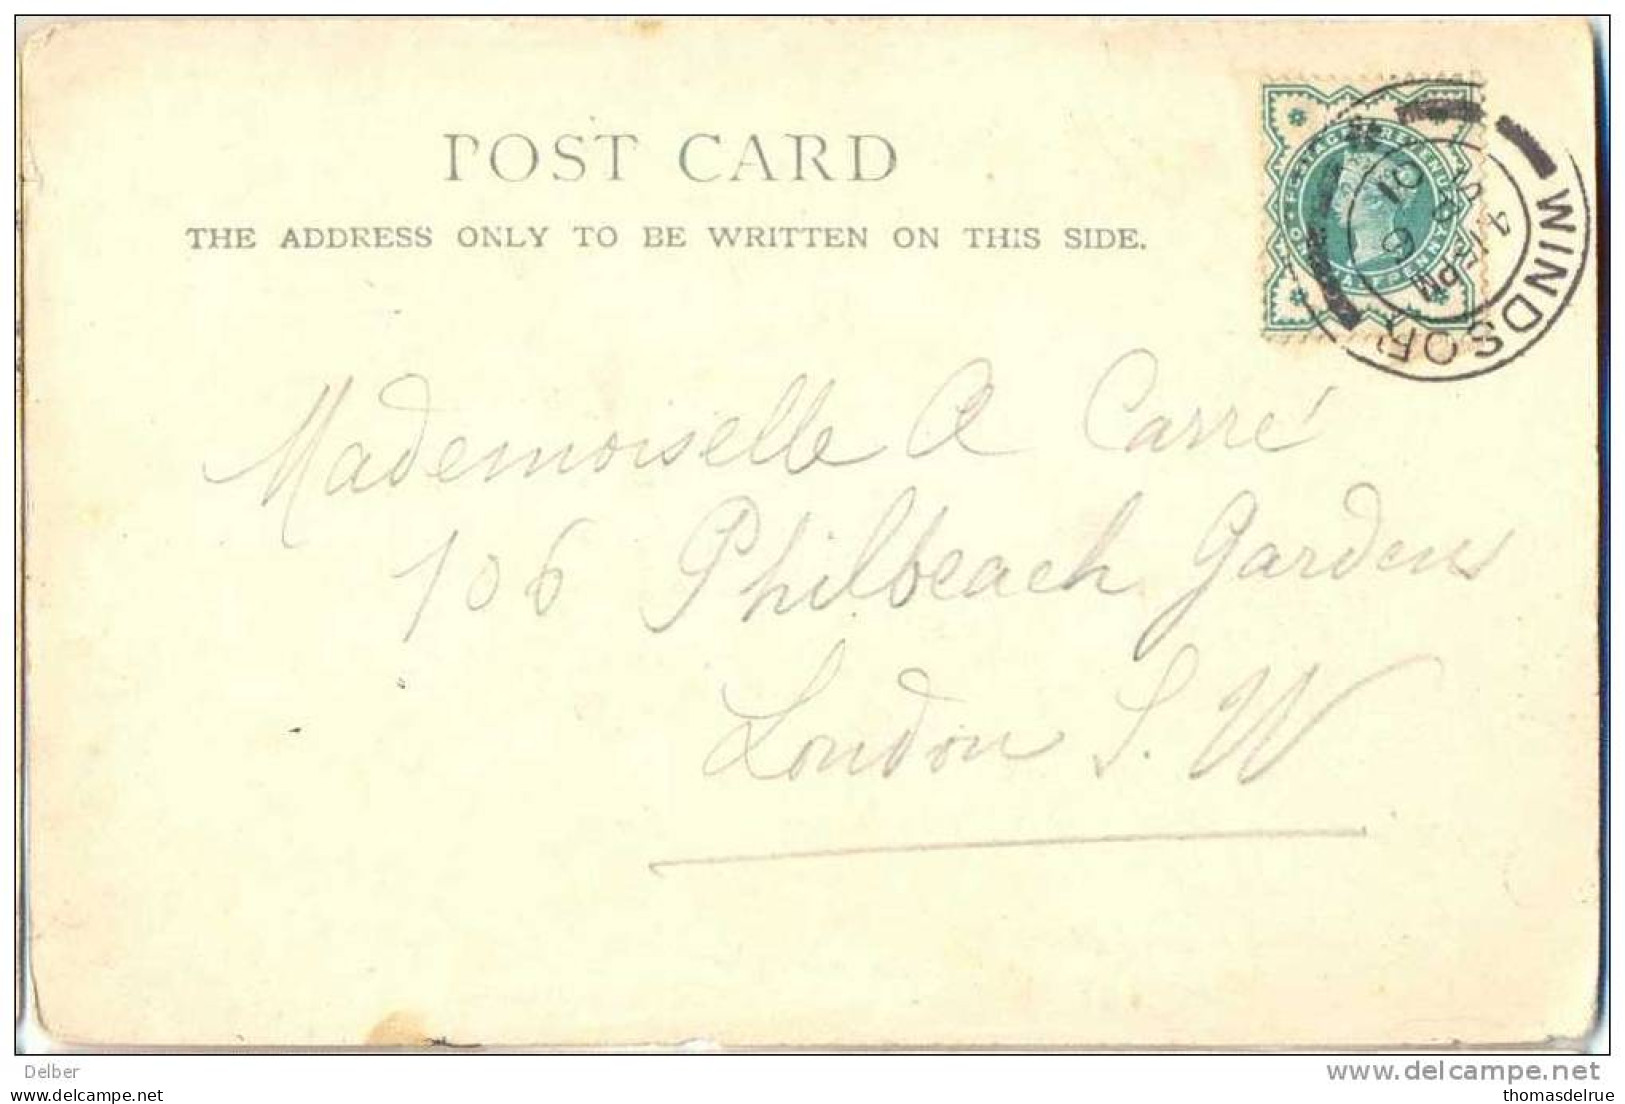 POST CARD
THE ADDRESS ONLY TO BE WRITTEN ON THIS SIDE.
POSTAGE & REVENUE
HALFPENNY
WINDSOR
4 15 PM
01
Mademoiselle A Carré
106 Philbeach Gardens
London S. W
Delber
www.delcampe.net
thomasdelrue